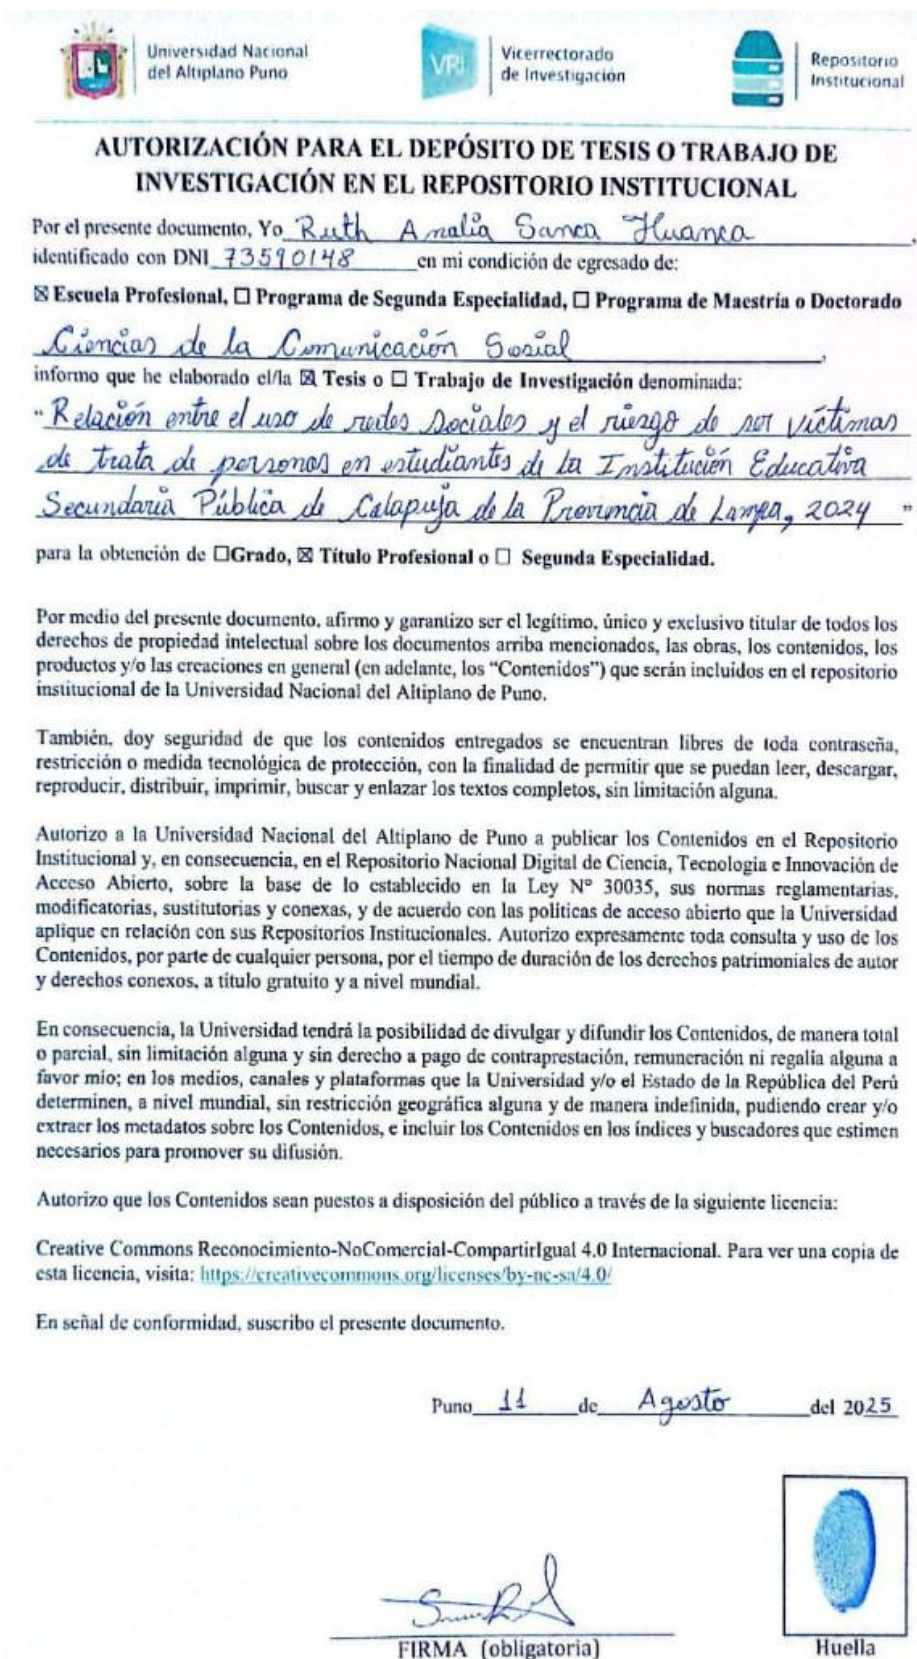 Universidad Nacional
del Altiplano Puno
VRI
Vicerrectorado
de Investigación
Repositorio
Institucional
AUTORIZACIÓN PARA EL DEPÓSITO DE TESIS O TRABAJO DE
INVESTIGACIÓN EN EL REPOSITORIO INSTITUCIONAL
Por el presente documento, Yo Ruth Analia Sanca Huanca,
identificado con DNI 73590148 en mi condición de egresado de:
☒ Escuela Profesional, ☐ Programa de Segunda Especialidad, ☐ Programa de Maestría o Doctorado
Ciencias de la Comunicación Social,
informo que he elaborado el/la ☒ Tesis o ☐ Trabajo de Investigación denominada:
"Relación entre el uso de redes sociales y el riesgo de ser víctimas
de trata de personas en estudiantes de la Institución Educativa
Secundaria Pública de Calapuja de la Provincia de Lampa, 2024"
para la obtención de ☐Grado, ☒ Título Profesional o ☐ Segunda Especialidad.
Por medio del presente documento, afirmo y garantizo ser el legítimo, único y exclusivo titular de todos los
derechos de propiedad intelectual sobre los documentos arriba mencionados, las obras, los contenidos, los
productos y/o las creaciones en general (en adelante, los “Contenidos”) que serán incluidos en el repositorio
institucional de la Universidad Nacional del Altiplano de Puno.
También, doy seguridad de que los contenidos entregados se encuentran libres de toda contraseña,
restricción o medida tecnológica de protección, con la finalidad de permitir que se puedan leer, descargar,
reproducir, distribuir, imprimir, buscar y enlazar los textos completos, sin limitación alguna.
Autorizo a la Universidad Nacional del Altiplano de Puno a publicar los Contenidos en el Repositorio
Institucional y, en consecuencia, en el Repositorio Nacional Digital de Ciencia, Tecnología e Innovación de
Acceso Abierto, sobre la base de lo establecido en la Ley N° 30035, sus normas reglamentarias,
modificatorias, sustitutorias y conexas, y de acuerdo con las políticas de acceso abierto que la Universidad
aplique en relación con sus Repositorios Institucionales. Autorizo expresamente toda consulta y uso de los
Contenidos, por parte de cualquier persona, por el tiempo de duración de los derechos patrimoniales de autor
y derechos conexos, a título gratuito y a nivel mundial.
En consecuencia, la Universidad tendrá la posibilidad de divulgar y difundir los Contenidos, de manera total
o parcial, sin limitación alguna y sin derecho a pago de contraprestación, remuneración ni regalía alguna a
favor mío; en los medios, canales y plataformas que la Universidad y/o el Estado de la República del Perú
determinen, a nivel mundial, sin restricción geográfica alguna y de manera indefinida, pudiendo crear y/o
extraer los metadatos sobre los Contenidos, e incluir los Contenidos en los índices y buscadores que estimen
necesarios para promover su difusión.
Autorizo que los Contenidos sean puestos a disposición del público a través de la siguiente licencia:
Creative Commons Reconocimiento-NoComercial-CompartirIgual 4.0 Internacional. Para ver una copia de
esta licencia, visita: https://creativecommons.org/licenses/by-nc-sa/4.0/
En señal de conformidad, suscribo el presente documento.
Puno 11 de Agosto del 2025
FIRMA (obligatoria)
Huella